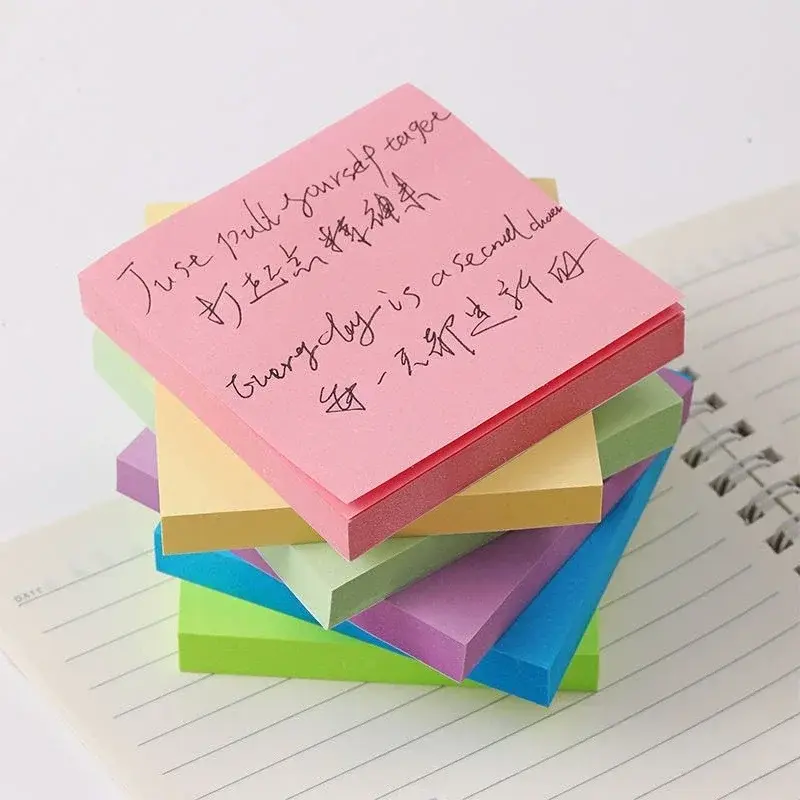 Just pull yourself togee
打起点精神来
Everyday is a second chance
每一天都是新的
DATE